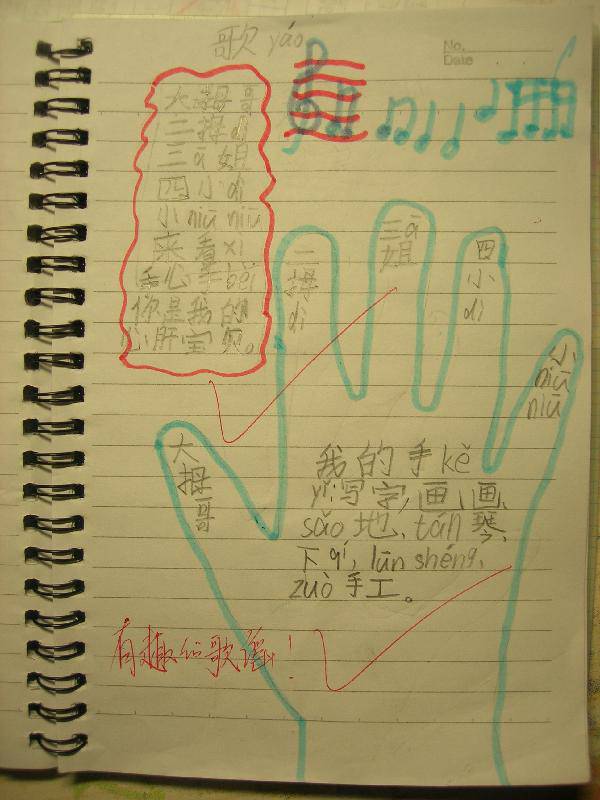 歌 yáo
No.
Date
大拇哥
二拇 dì
三 ā 姐
四小 dì
小 niū niū
来看 xì
手心手 bèi
你是我的
心肝宝贝。
二拇 dì
三 ā 姐
四小 dì
小 niū niū
大拇哥
我的手 kě
yǐ 写字,画画、
sǎo 地、tán 琴、
下 qí、lūn shéng、
zuò 手工。
有趣的歌谣!